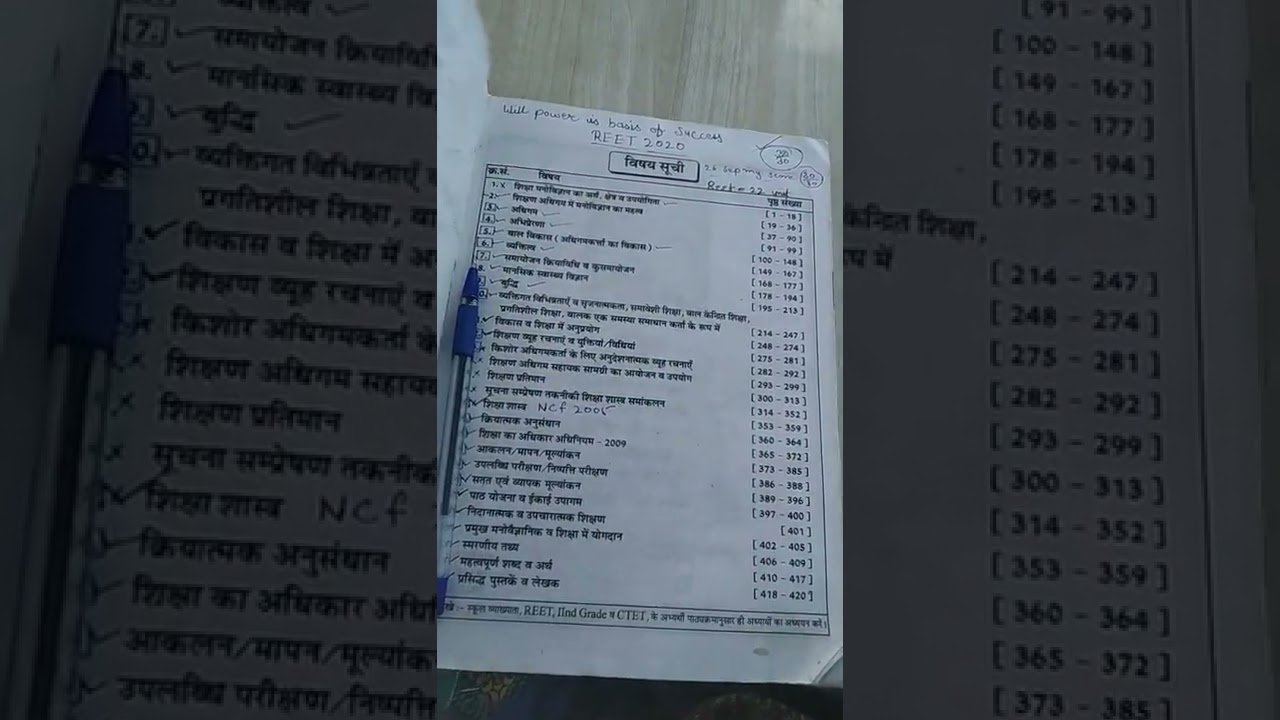 Will power is basis of Success
REET 2020
विषय सूची
क्र.सं. विषय पृष्ठ संख्या
1. शिक्षा मनोविज्ञान का अर्थ, क्षेत्र व उपयोगिता [ 1 - 18 ]
2. शिक्षण अधिगम में मनोविज्ञान का महत्व [ 19 - 36 ]
3. अधिगम [ 37 - 90 ]
4. अभिप्रेरणा [ 91 - 99 ]
5. बाल विकास ( अधिगमकर्त्ता का विकास ) [ 100 - 148 ]
6. व्यक्तित्व [ 149 - 167 ]
7. समायोजन क्रियाविधि व कुसमायोजन [ 168 - 177 ]
8. मानसिक स्वास्थ्य विज्ञान [ 178 - 194 ]
बुद्धि [ 195 - 213 ]
0. व्यक्तिगत विभिन्नताएँ व सृजनात्मकता, समावेशी शिक्षा, बाल केन्द्रित शिक्षा,
प्रगतिशील शिक्षा, बालक एक समस्या समाधान कर्ता के रूप में [ 214 - 247 ]
विकास व शिक्षा में अनुप्रयोग [ 248 - 274 ]
शिक्षण व्यूह रचनाएं व युक्तियां/विधियां [ 275 - 281 ]
किशोर अधिगमकर्ता के लिए अनुदेशनात्मक व्यूह रचनाएँ [ 282 - 292 ]
शिक्षण अधिगम सहायक सामग्री का आयोजन व उपयोग [ 293 - 299 ]
शिक्षण प्रतिमान [ 300 - 313 ]
सूचना सम्प्रेषण तकनीकी शिक्षा शास्त्र समांकलन [ 314 - 352 ]
शिक्षा शास्त्र NCf 2005 [ 353 - 359 ]
क्रियात्मक अनुसंधान [ 360 - 364 ]
शिक्षा का अधिकार अधिनियम - 2009 [ 365 - 372 ]
आकलन/मापन/मूल्यांकन [ 373 - 385 ]
उपलब्धि परीक्षण/निष्पत्ति परीक्षण [ 386 - 388 ]
सतत एवं व्यापक मूल्यांकन [ 389 - 396 ]
पाठ योजना व ईकाई उपागम [ 397 - 400 ]
निदानात्मक व उपचारात्मक शिक्षण [ 401 ]
प्रमुख मनोवैज्ञानिक व शिक्षा में योगदान [ 402 - 405 ]
स्मरणीय तथ्य [ 406 - 409 ]
महत्वपूर्ण शब्द व अर्थ [ 410 - 417 ]
प्रसिद्ध पुस्तकें व लेखक [ 418 - 420 ]
:- स्कूल व्याख्याता, REET, IInd Grade व CTET, के अभ्यर्थी पाठ्यक्रमानुसार ही अध्यायों का अध्ययन करें।